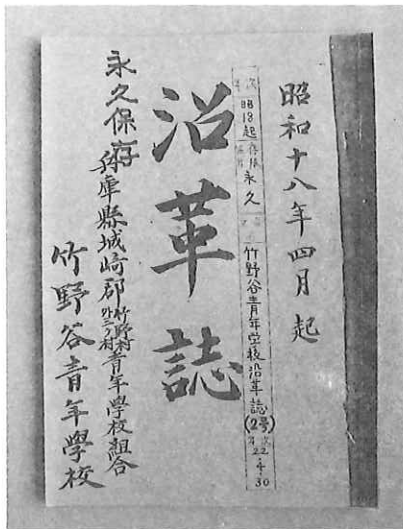 昭和十八年四月起
昭18起 永久 竹野谷青年学校沿革誌(2号) 22.4.30
沿革誌
永久保存
兵庫縣城崎郡竹野村外三ヶ村青年學校組合
竹野谷青年學校